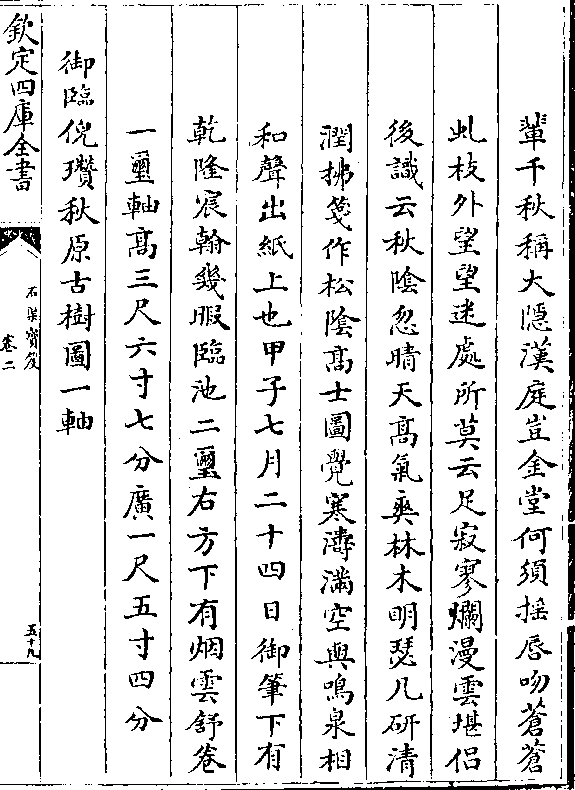 輩千秋稱大隱漢庭豈金堂何須揺唇吻蒼蒼
虬枝外望望迷處所莫云足寂寥爛漫雲堪侣
後識云秋陰忽晴天髙氣爽林木明瑟几研清
潤拂箋作松陰髙士圖覺寒濤滿空與鳴泉相
和聲出紙上也甲子七月二十四日御筆下有
乾隆宸翰幾暇臨池二璽右方下有烟雲舒卷
一璽軸髙三尺六寸七分廣一尺五寸四分
御臨倪瓚秋原古樹圖一軸
欽定四庫全書
石渠寳笈
卷二
五十九